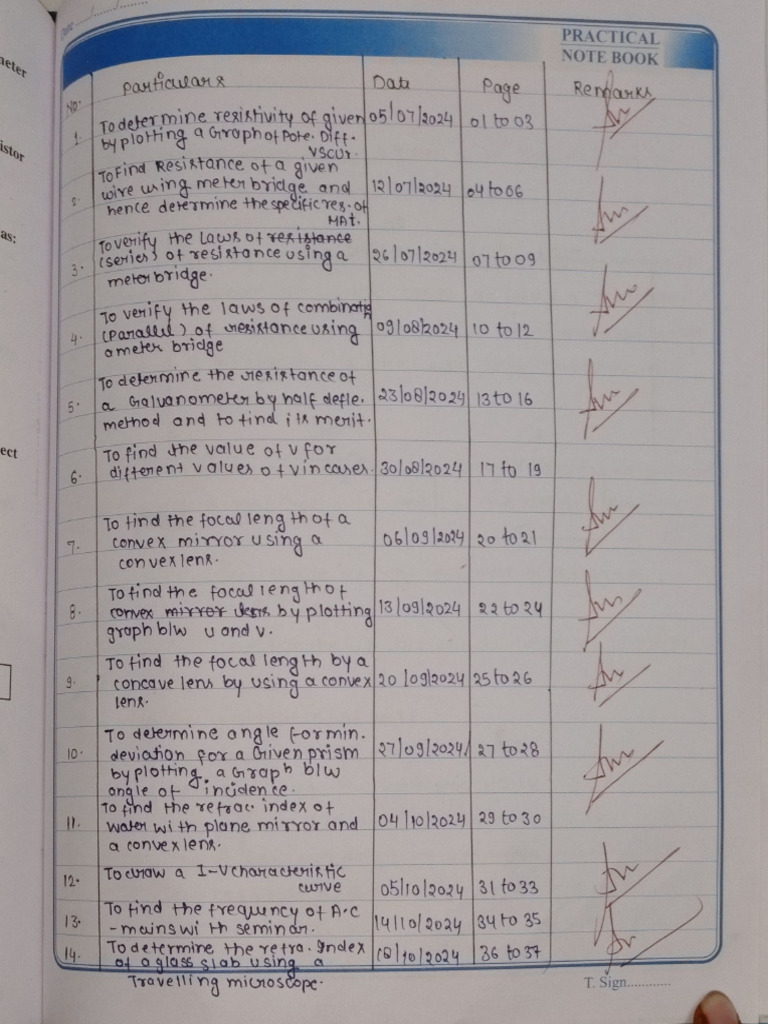 Date
PRACTICAL
NOTE BOOK
No. Particulars Date Page Remarks
1. To determine resistivity of given 05/07/2024 01 to 03
by plotting a Graph of Pote. Diff.
VS CUr.
2. To Find Resistance of a given
wire using meter bridge and 12/07/2024 04 to 06
hence determine the specific res. of
MAt.
3. To verify the laws of resistance
(series) of resistance using a 26/07/2024 07 to 09
meter bridge.
4. To verify the laws of combinatin
(parallel) of resistance using 09/08/2024 10 to 12
a meter bridge
5. To determine the resistance of
a Galvanometer by half defle. 23/08/2024 13 to 16
method and to find its merit.
6. To find the value of v for
different values of v in cases. 30/08/2024 17 to 19
7. To find the focal length of a
convex mirror using a 06/09/2024 20 to 21
convex lens.
8. To find the focal length of
convex mirror lens by plotting 13/09/2024 22 to 24
graph b/w u and v.
9. To find the focal length by a
concave lens by using a convex 20/09/2024 25 to 26
lens.
10. To determine angle for min.
deviation for a Given prism 27/09/2024 27 to 28
by plotting a Graph b/w
angle of incidence.
11. To find the refrac. index of
water with plane mirror and 04/10/2024 29 to 30
a convex lens.
12. To draw a I-V characteristic
curve 05/10/2024 31 to 33
13. To find the frequency of A.C
-mains with seminar. 14/10/2024 34 to 35
14. To determine the refra. Index
of a glass slab using a 18/10/2024 36 to 37
Travelling microscope.
T. Sign............
meter
istor
as:
ect